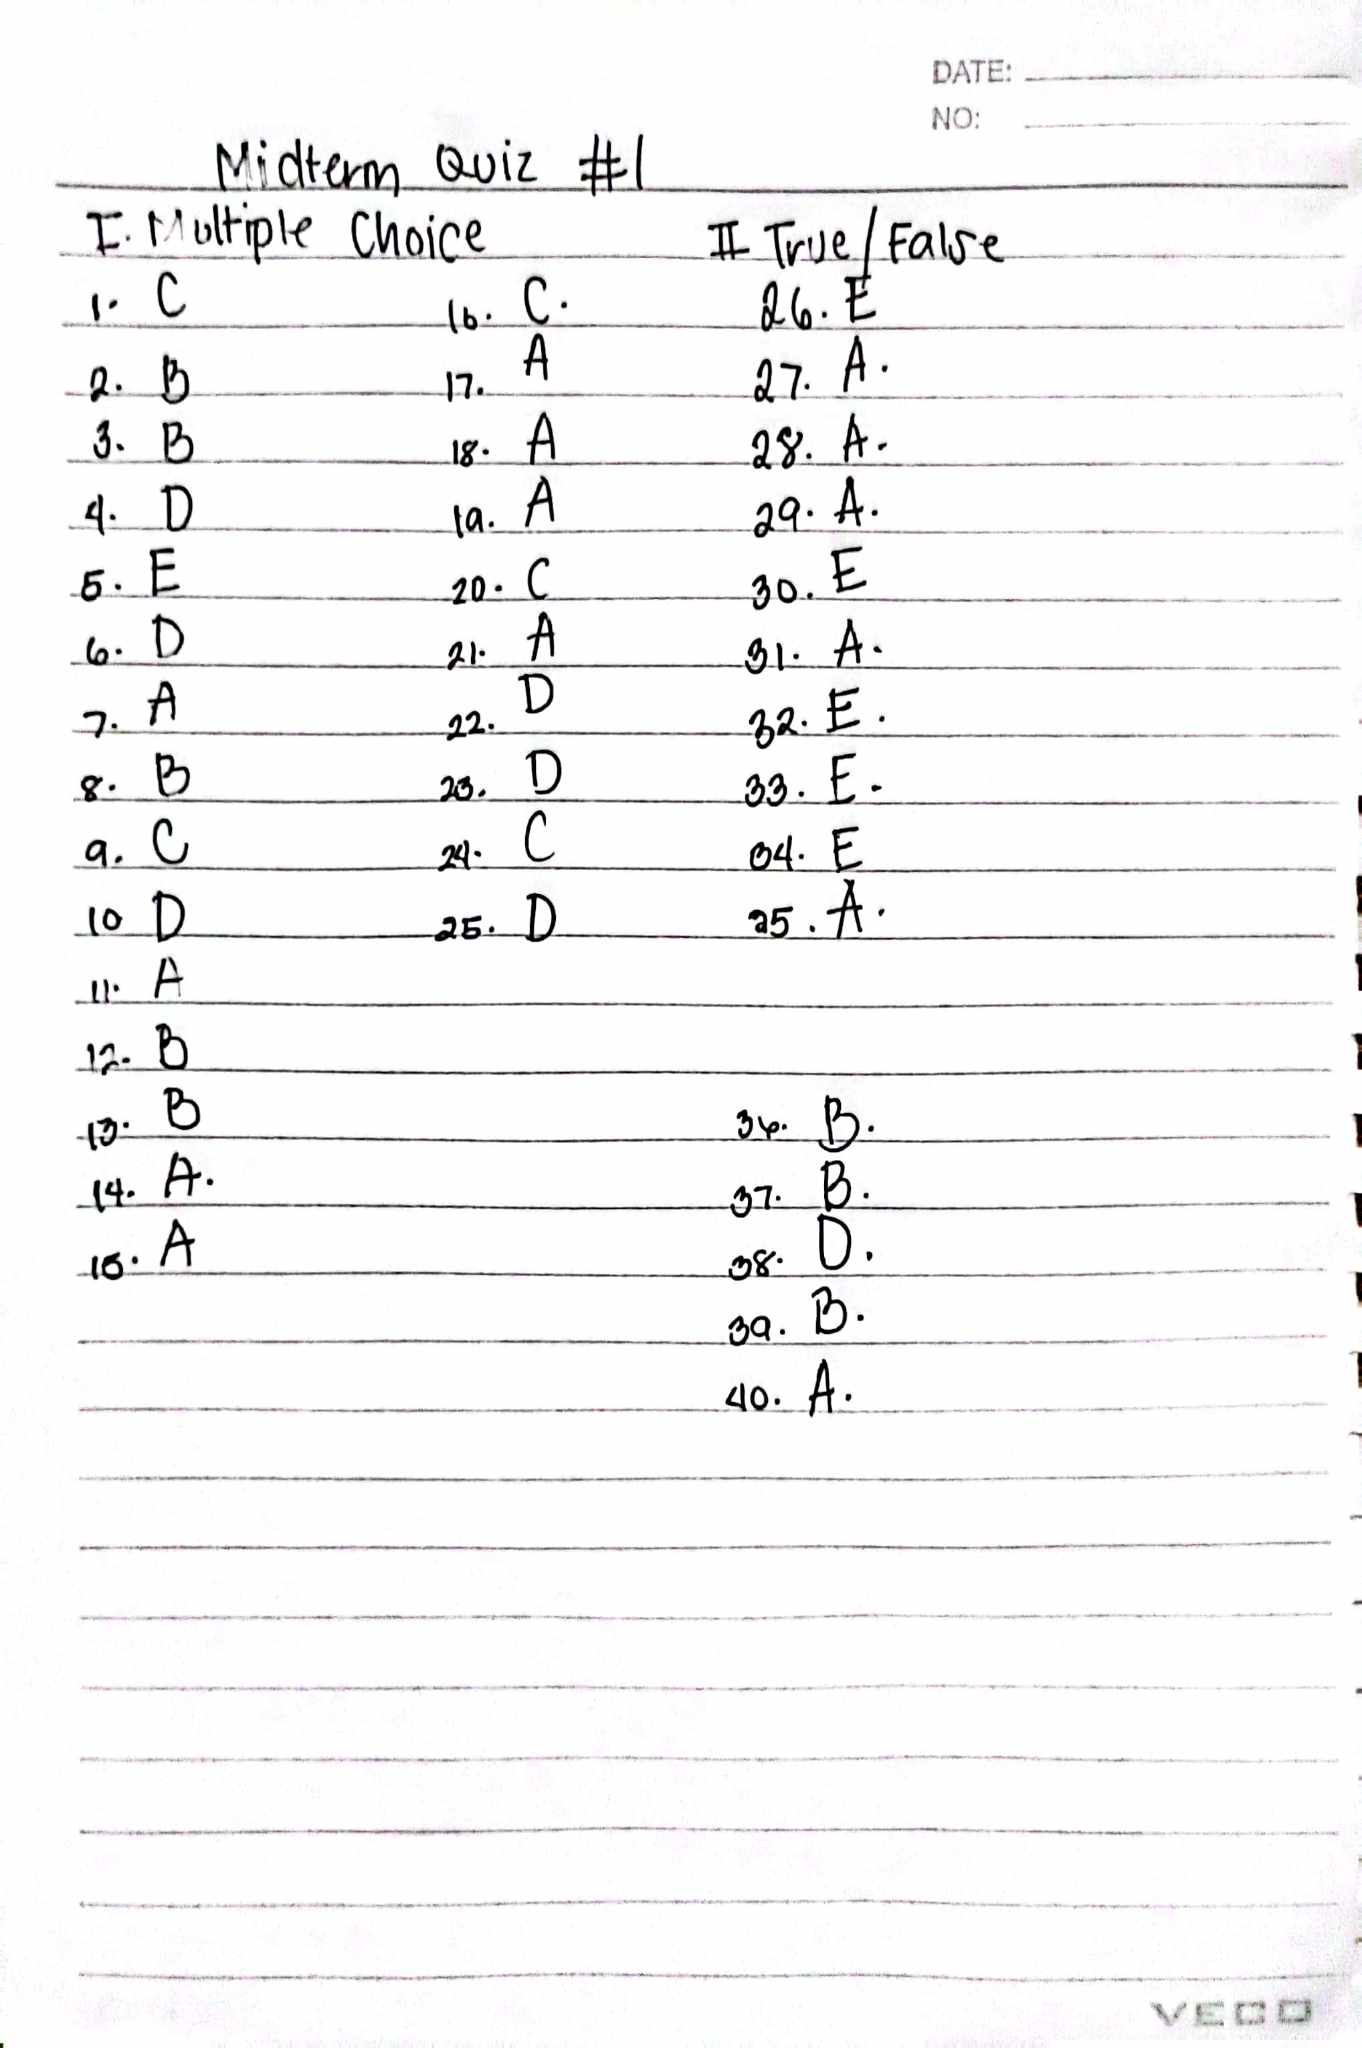 DATE:
NO:
Midterm Quiz #1
I. Multiple Choice
1. C
2. B
3. B
4. D
5. E
6. D
7. A
8. B
9. C
10 D
11. A
12. B
13. B
14. A.
15. A
16. C.
17. A
18. A
19. A
20. C
21. A
22. D
23. D
24. C
25. D
II True/False
26. E
27. A.
28. A.
29. A.
30. E
31. A.
32. E.
33. E.
34. E
35. A.
36. B.
37. B.
38. D.
39. B.
40. A.
VECO